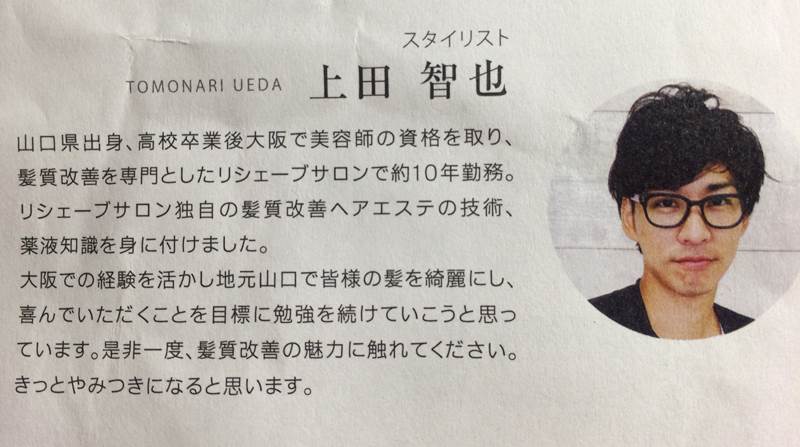 スタイリスト
TOMONARI UEDA 上田 智也
山口県出身、高校卒業後大阪で美容師の資格を取り、
髪質改善を専門としたリシェーブサロンで約10年勤務。
リシェーブサロン独自の髪質改善ヘアエステの技術、
薬液知識を身に付けました。
大阪での経験を活かし地元山口で皆様の髪を綺麗にし、
喜んでいただくことを目標に勉強を続けていこうと思っ
ています。是非一度、髪質改善の魅力に触れてください。
きっとやみつきになると思います。